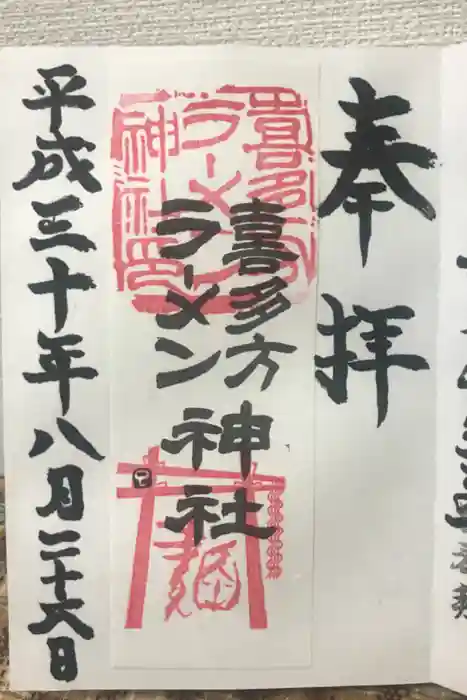 奉拝
喜多方
ラーメン
神社
喜多方
ラーメン
神社
平成三十年八月二十六日